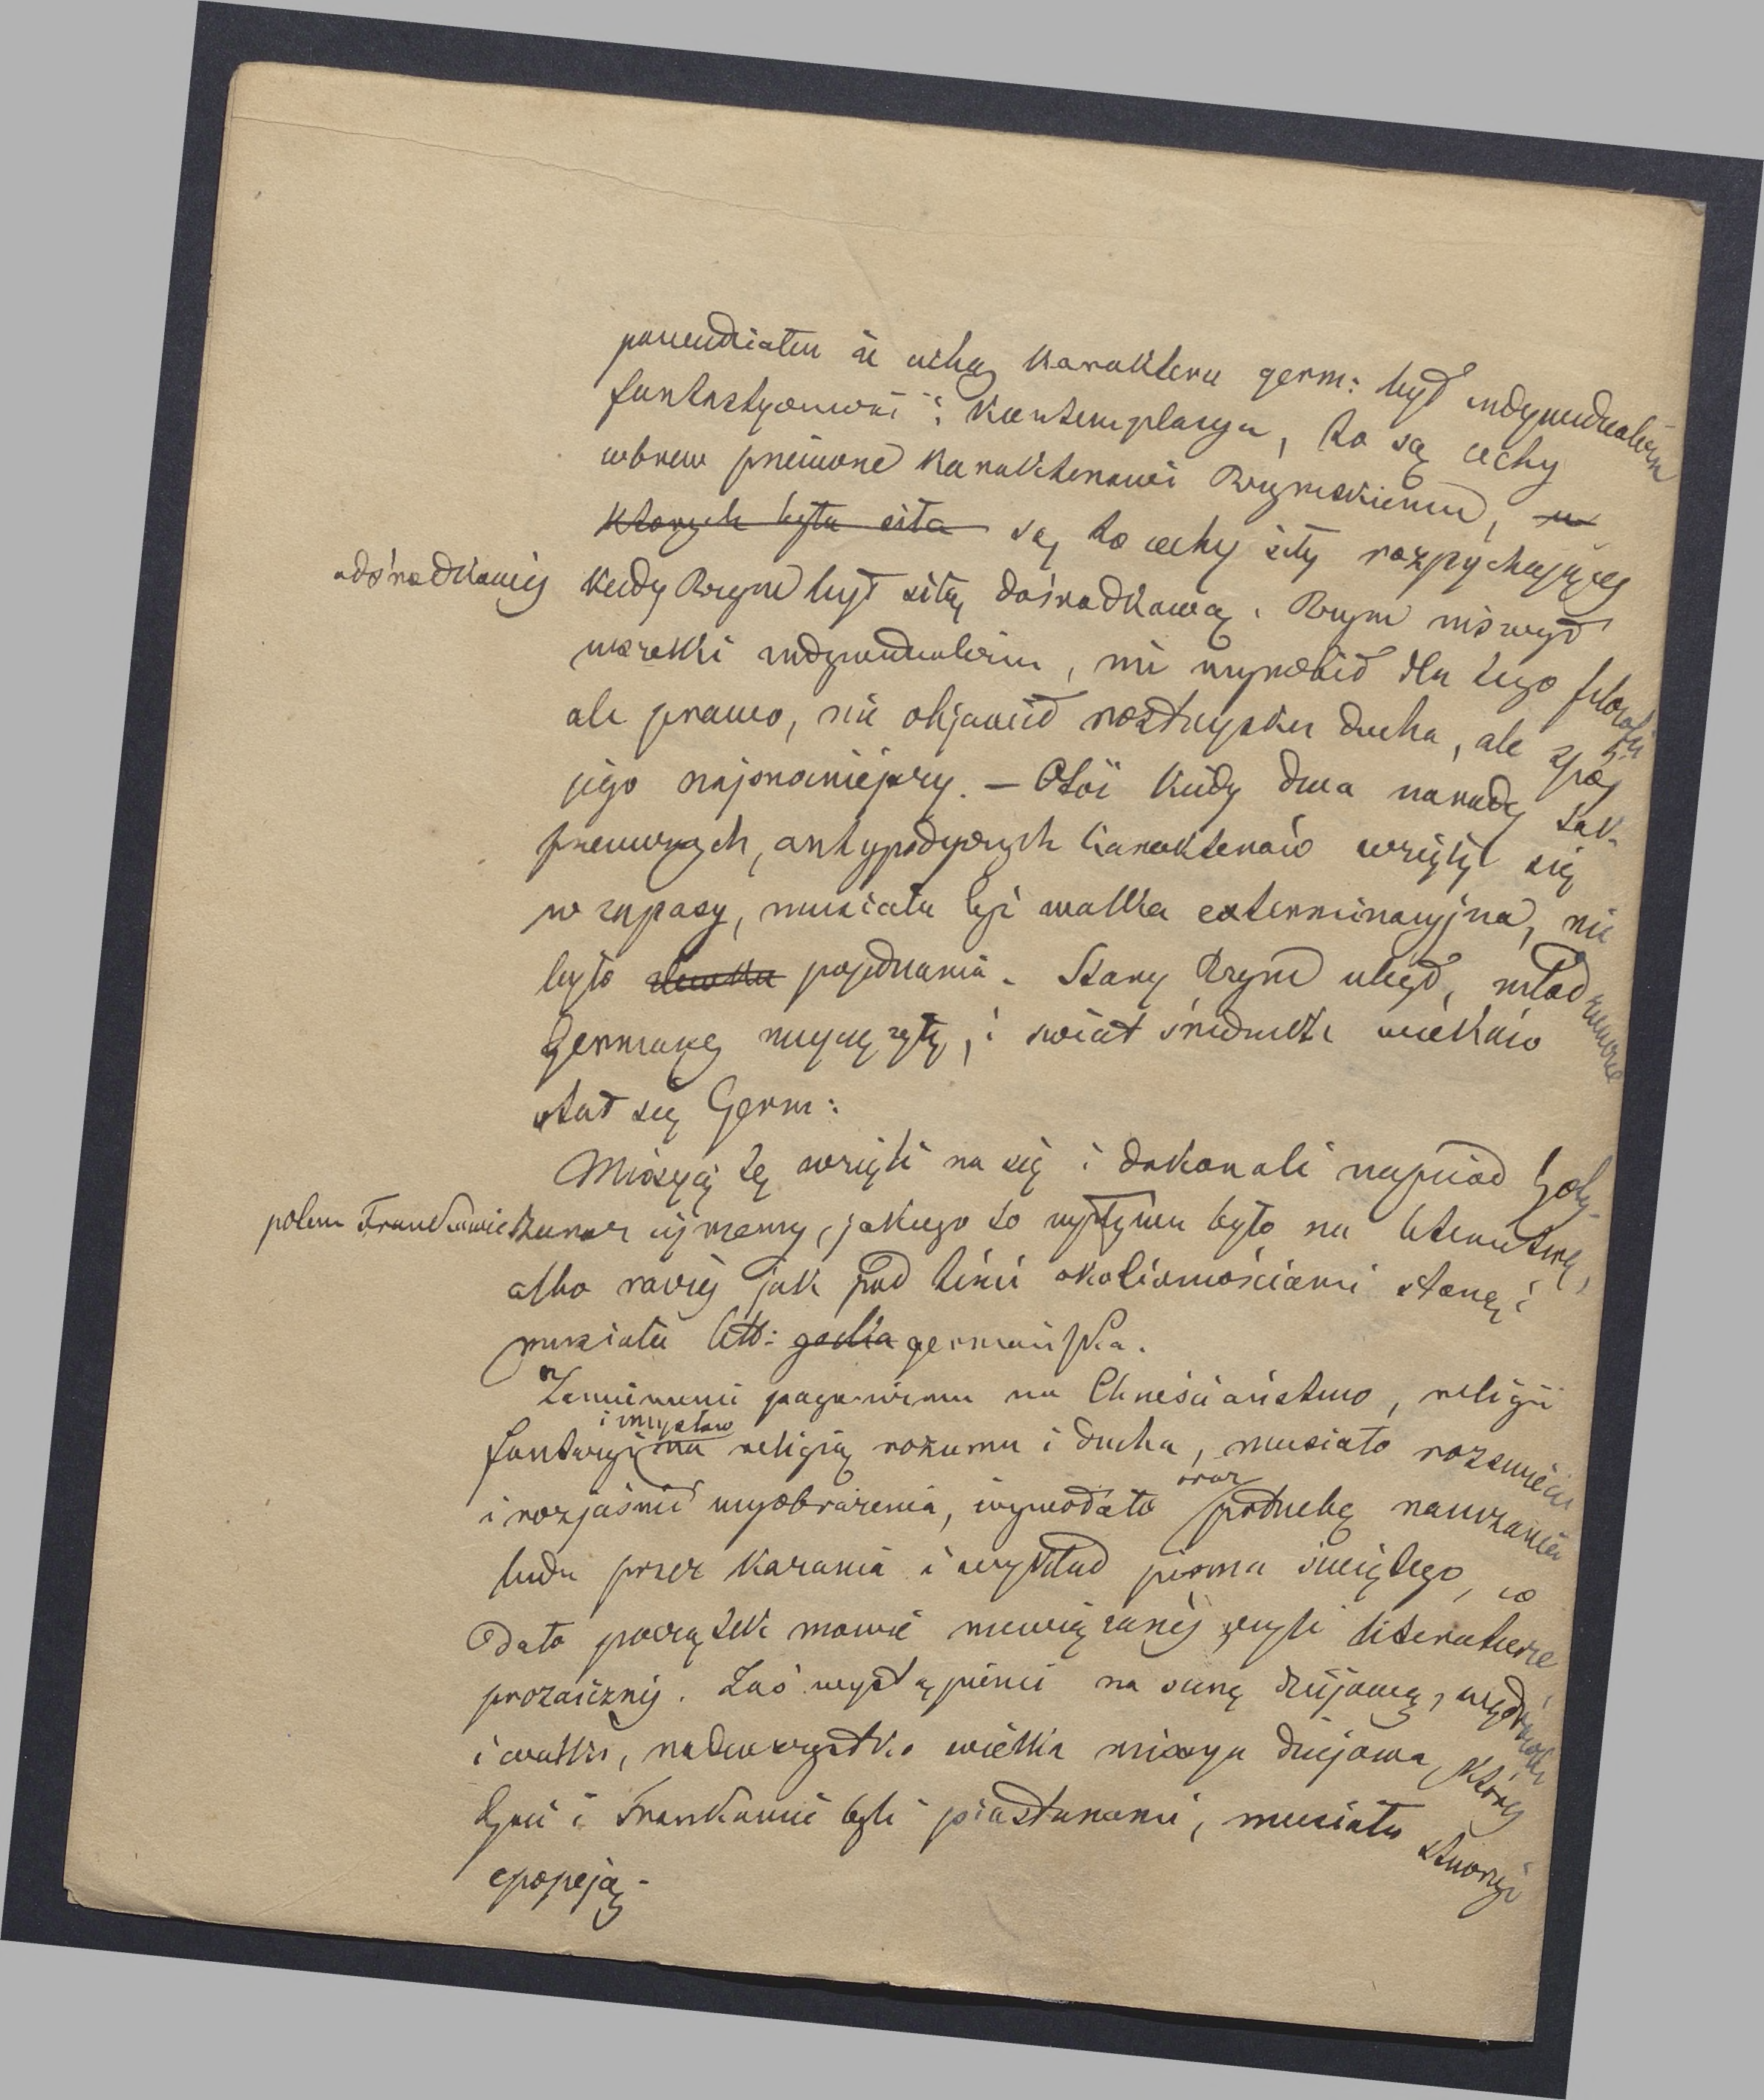 powiedziałem że cechą karakteru germ: był indywidualizm
fantastyczność i kontemplacya, to są cechy
wbrew przeciwne karakterowi Rzymskiemu, w
których była siła są to cechy siły rozpychającej
odśrodkowej
kiedy Rzym był siłą dośrodkową. Rzym niszczył
wszelki indywidualizm, nie wyrobił dla tego filozofii
ale prawo, nie objawił roztrysku ducha, ale spój
jego najsroniejszy. — Otóż kiedy dwa narody tak
przeciwnych, antypodycznych karakterów wzięły się
w zapasy, musiała być walka exterminacyjna, nie
było pojednania. Stary Rzym uległ, młodzieńcze
Germany zwyciężyły, i świat średnich wieków
stał się Germ:
Missyą tę wzięli na się i dokonali naprzód Goty
potem Frankowie
Zobaczmy, jakiego to wpływu było na literaturę,
albo raczej jak pod temi okolicznościami stanąć
musiała litt: gocka germańska.
Zamienienie paganizmu na Chrześciaństwo, religii
i mysłów
fantazyi na religią rozumu i ducha, musiało rozszerzyć
i rozjaśnić wyobrażenia, wywołało potrzebę nauczania
oraz
ludu przez kazania i wykład pisma świętego, co
dało początek mowie niewiązanej czyli literaturze
prozaicznej. Zaś wystąpienie na scenę dziejową, wędrówki
i walki, nadewszystko wielka missya dziejowa, której
Goci i Frankowie byli piastunami, musiała stworzyć
epopeją.